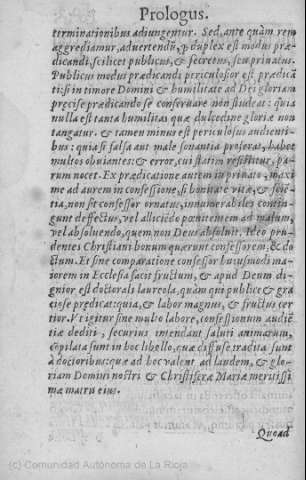 Prologus.
terminationibus adiungentur. Sed, ante quàm rem
aggrediamur, aduertendũ, ꝙ duplex est modus præ-
dicandi, scilicet publicus, & secretus, seu priuatus.
Publicus modus prædicandi periculosior est prædicã
ti: si in timore Domini & humilitate ad Dei gloriam
precise prædicando se conseruare non studeat: quia
nulla est tanta humilitas quæ dulcedine gloriæ non
tangatur. & tamen minus est periculosus audienti-
bus: quia si falsa aut male sonantia proferat, habet
multos obuiantes: & error, cui statim resistitur, pa-
rum nocet. Ex prædicatione autem in priuato, maxi
me ad aurem in confessione, si bonitate vitæ, & sciẽ
tia, non sit confessor ornatus, innumerabiles contin-
gunt deffectus, vel alliciẽdo pœnitentem ad malum,
vel absoluendo, quem non Deus absoluit. Ideo pru-
dentes Christiani bonum quærunt confessorem, & do
ctum. Et sine comparatione confessor huiusmodi ma-
iorem in Ecclesia facit fructum, & apud Deum di-
gnior est doctorali laureola, quàm qui publice & gra
ciose prædicat: quia, & labor magnus, & fructus cer
tior. Vt igitur sine multo labore, confessionum audiẽ
tiæ dediti, securius intendant saluti animarum,
cõpilata sunt in hoc libello, quæ diffuse tradita sunt
à doctoribus: quæ ad hoc valent ad laudem, & glo-
riam Domini nostri & Christiferæ Mariæ meritissi
mæ matris eius.
Quoad
(c) Comunidad Autónoma de La Rioja